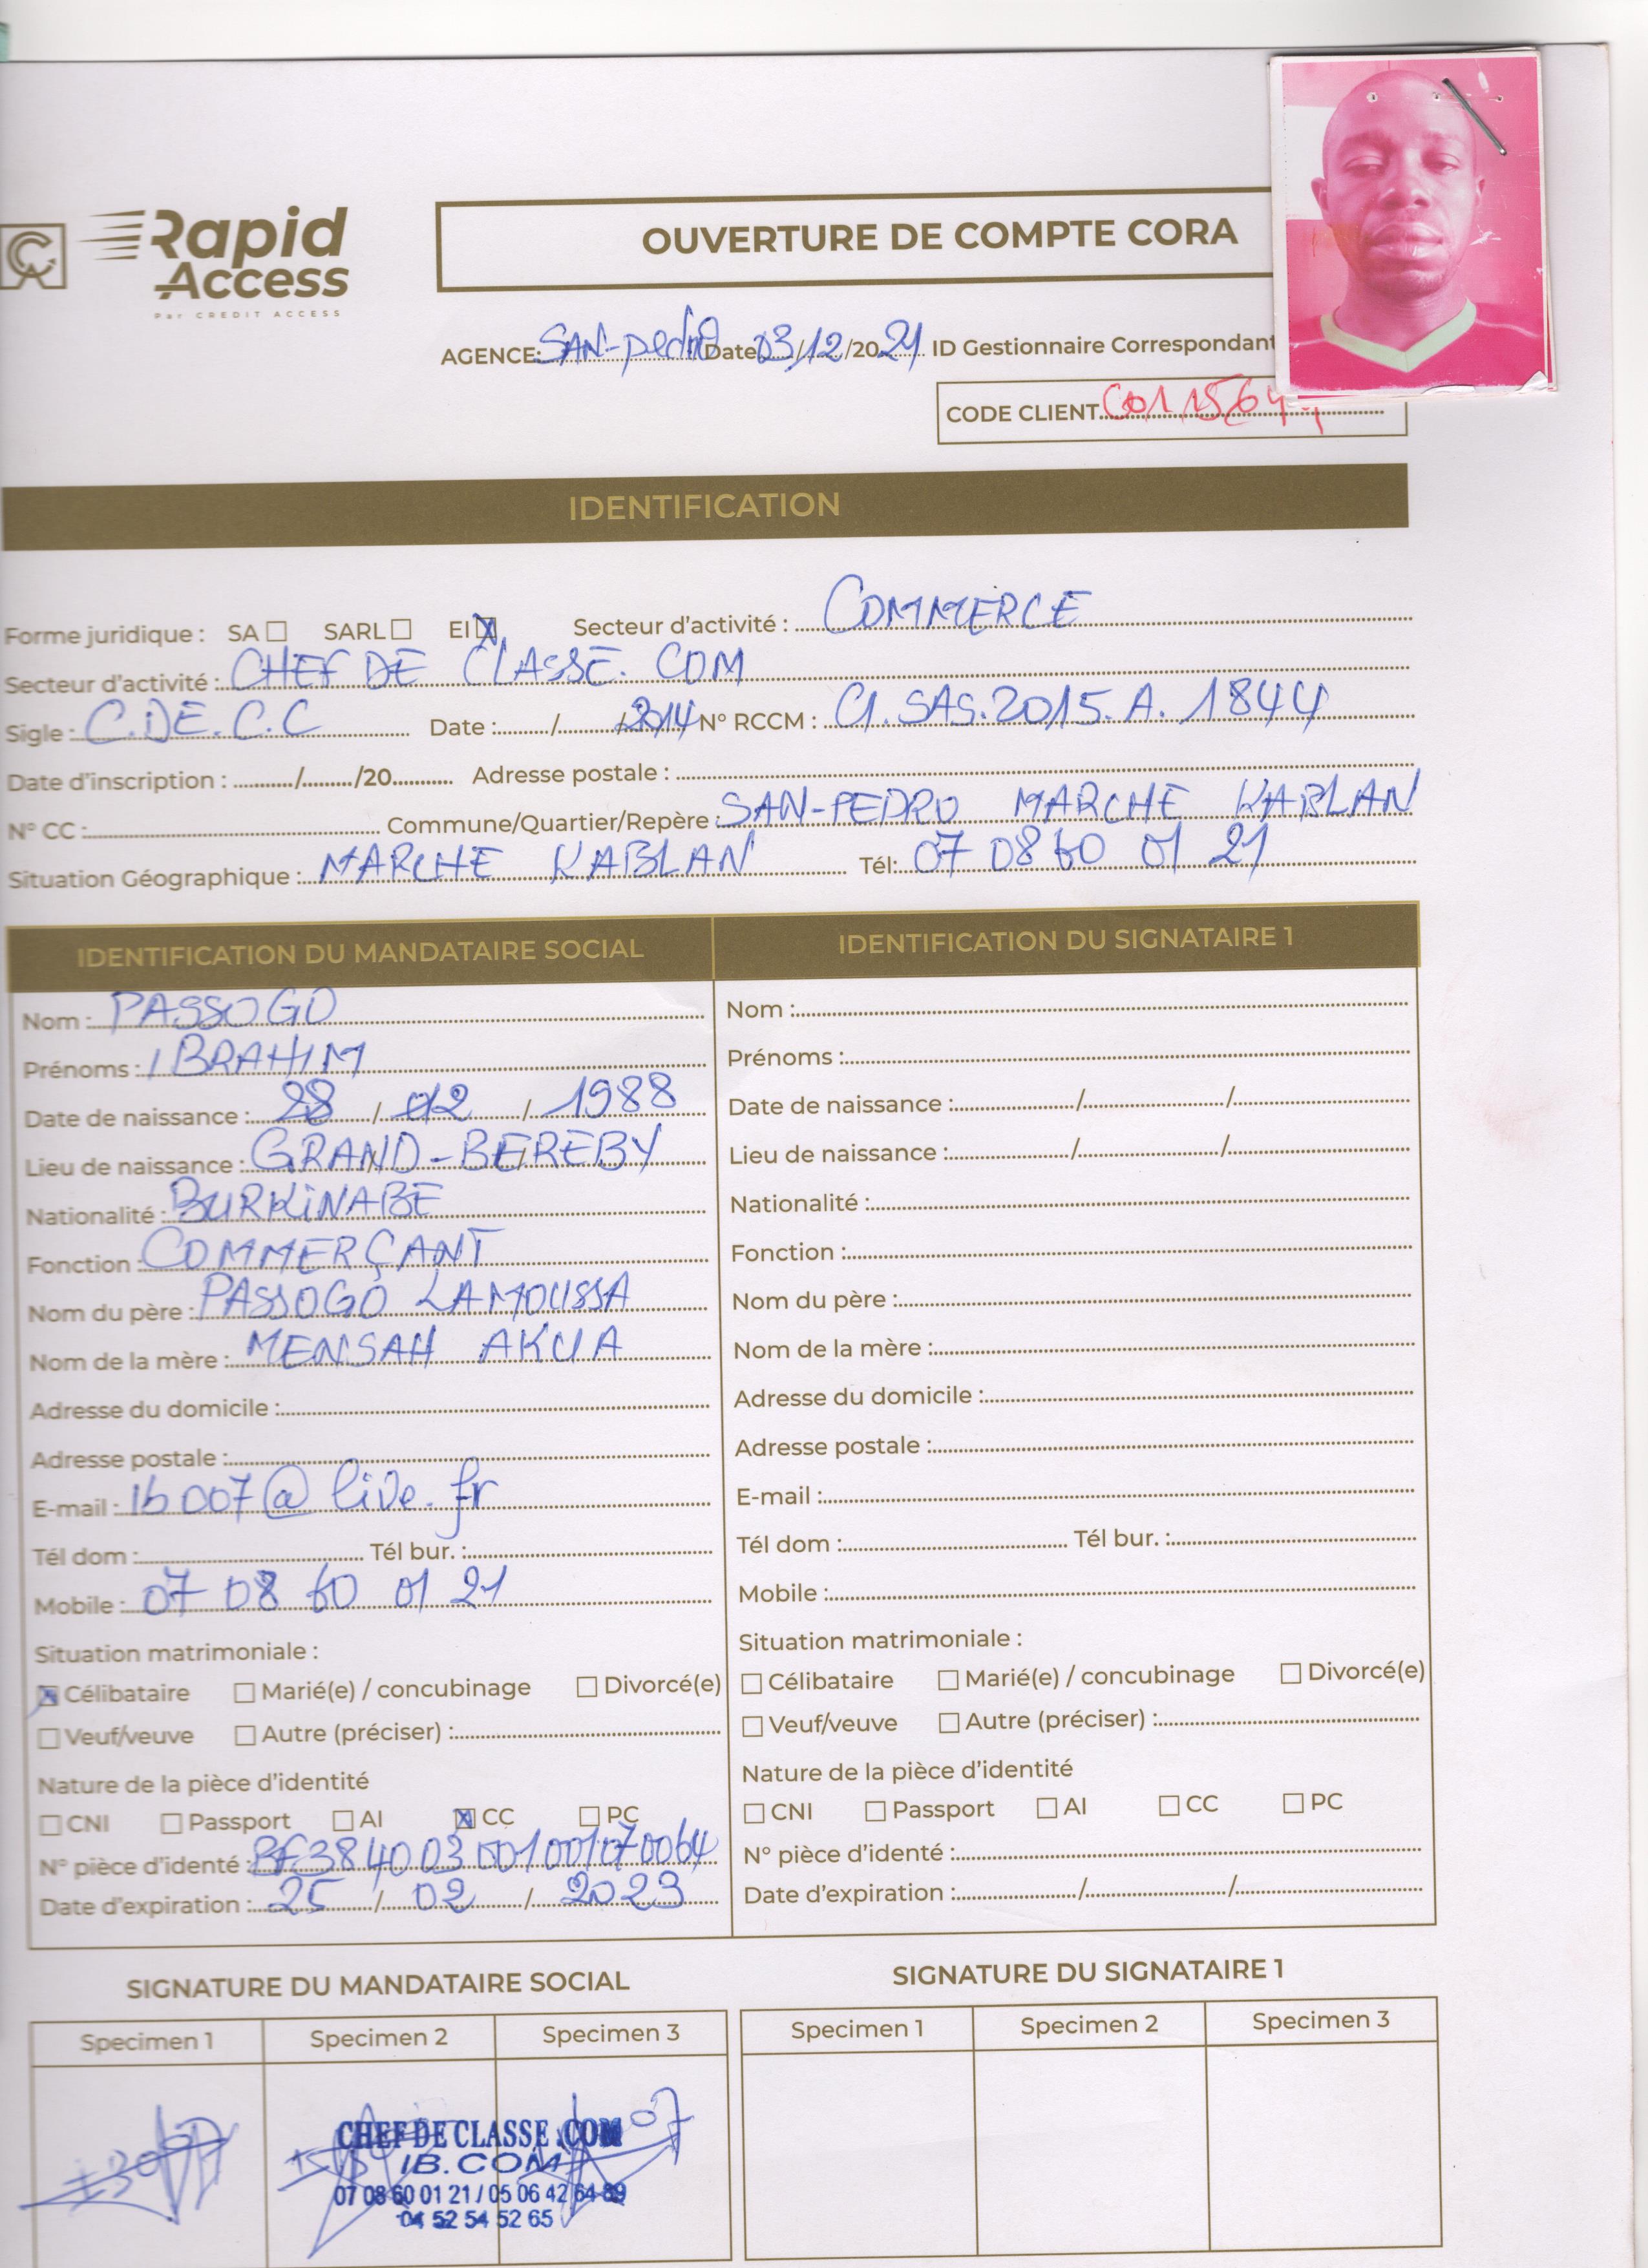 Rapid
Access
Par CREDIT ACCESS
OUVERTURE DE COMPTE CORA
AGENCE: SAN-pedro Date 03/12/2021 ID Gestionnaire Correspondant
CODE CLIENT
IDENTIFICATION
Forme juridique : SA ☐ SARL ☐ EI ☒ Secteur d'activité : COMMERCE
Secteur d'activité : CHEF DE CLASSE. COM
Sigle : C.DE.C.C Date : / /2014 N° RCCM : CI.SAS.2015.A.1844
Date d'inscription : / /20 Adresse postale :
N° CC : Commune/Quartier/Repère : SAN-PEDRO MARCHE KABLAN
Situation Géographique : MARCHE KABLAN Tél: 07 08 60 01 21
IDENTIFICATION DU MANDATAIRE SOCIAL
Nom : PASSOGO
Prénoms : IBRAHIM
Date de naissance : 28 / 02 / 1988
Lieu de naissance : GRAND-BEREBY
Nationalité : BURKINABE
Fonction : COMMERÇANT
Nom du père : PASSOGO LAMOUSSA
Nom de la mère : MENSAH AKUA
Adresse du domicile :
Adresse postale :
E-mail : ib007@live.fr
Tél dom : Tél bur. :
Mobile : 07 08 60 01 21
Situation matrimoniale :
☒ Célibataire ☐ Marié(e) / concubinage ☐ Divorcé(e)
☐ Veuf/veuve ☐ Autre (préciser) :
Nature de la pièce d'identité
☐ CNI ☐ Passport ☐ AI ☒ CC ☐ PC
N° pièce d'identé : BF384003001001070064
Date d'expiration : 25 / 02 / 2023
IDENTIFICATION DU SIGNATAIRE 1
Nom :
Prénoms :
Date de naissance : / /
Lieu de naissance : / /
Nationalité :
Fonction :
Nom du père :
Nom de la mère :
Adresse du domicile :
Adresse postale :
E-mail :
Tél dom : Tél bur. :
Mobile :
Situation matrimoniale :
☐ Célibataire ☐ Marié(e) / concubinage ☐ Divorcé(e)
☐ Veuf/veuve ☐ Autre (préciser) :
Nature de la pièce d'identité
☐ CNI ☐ Passport ☐ AI ☐ CC ☐ PC
N° pièce d'identé :
Date d'expiration : / /
SIGNATURE DU MANDATAIRE SOCIAL
Specimen 1 Specimen 2 Specimen 3
CHEF DE CLASSE .COM
IB.COM
07 08 60 01 21 / 05 06 42 64 89
04 52 54 52 65
SIGNATURE DU SIGNATAIRE 1
Specimen 1 Specimen 2 Specimen 3